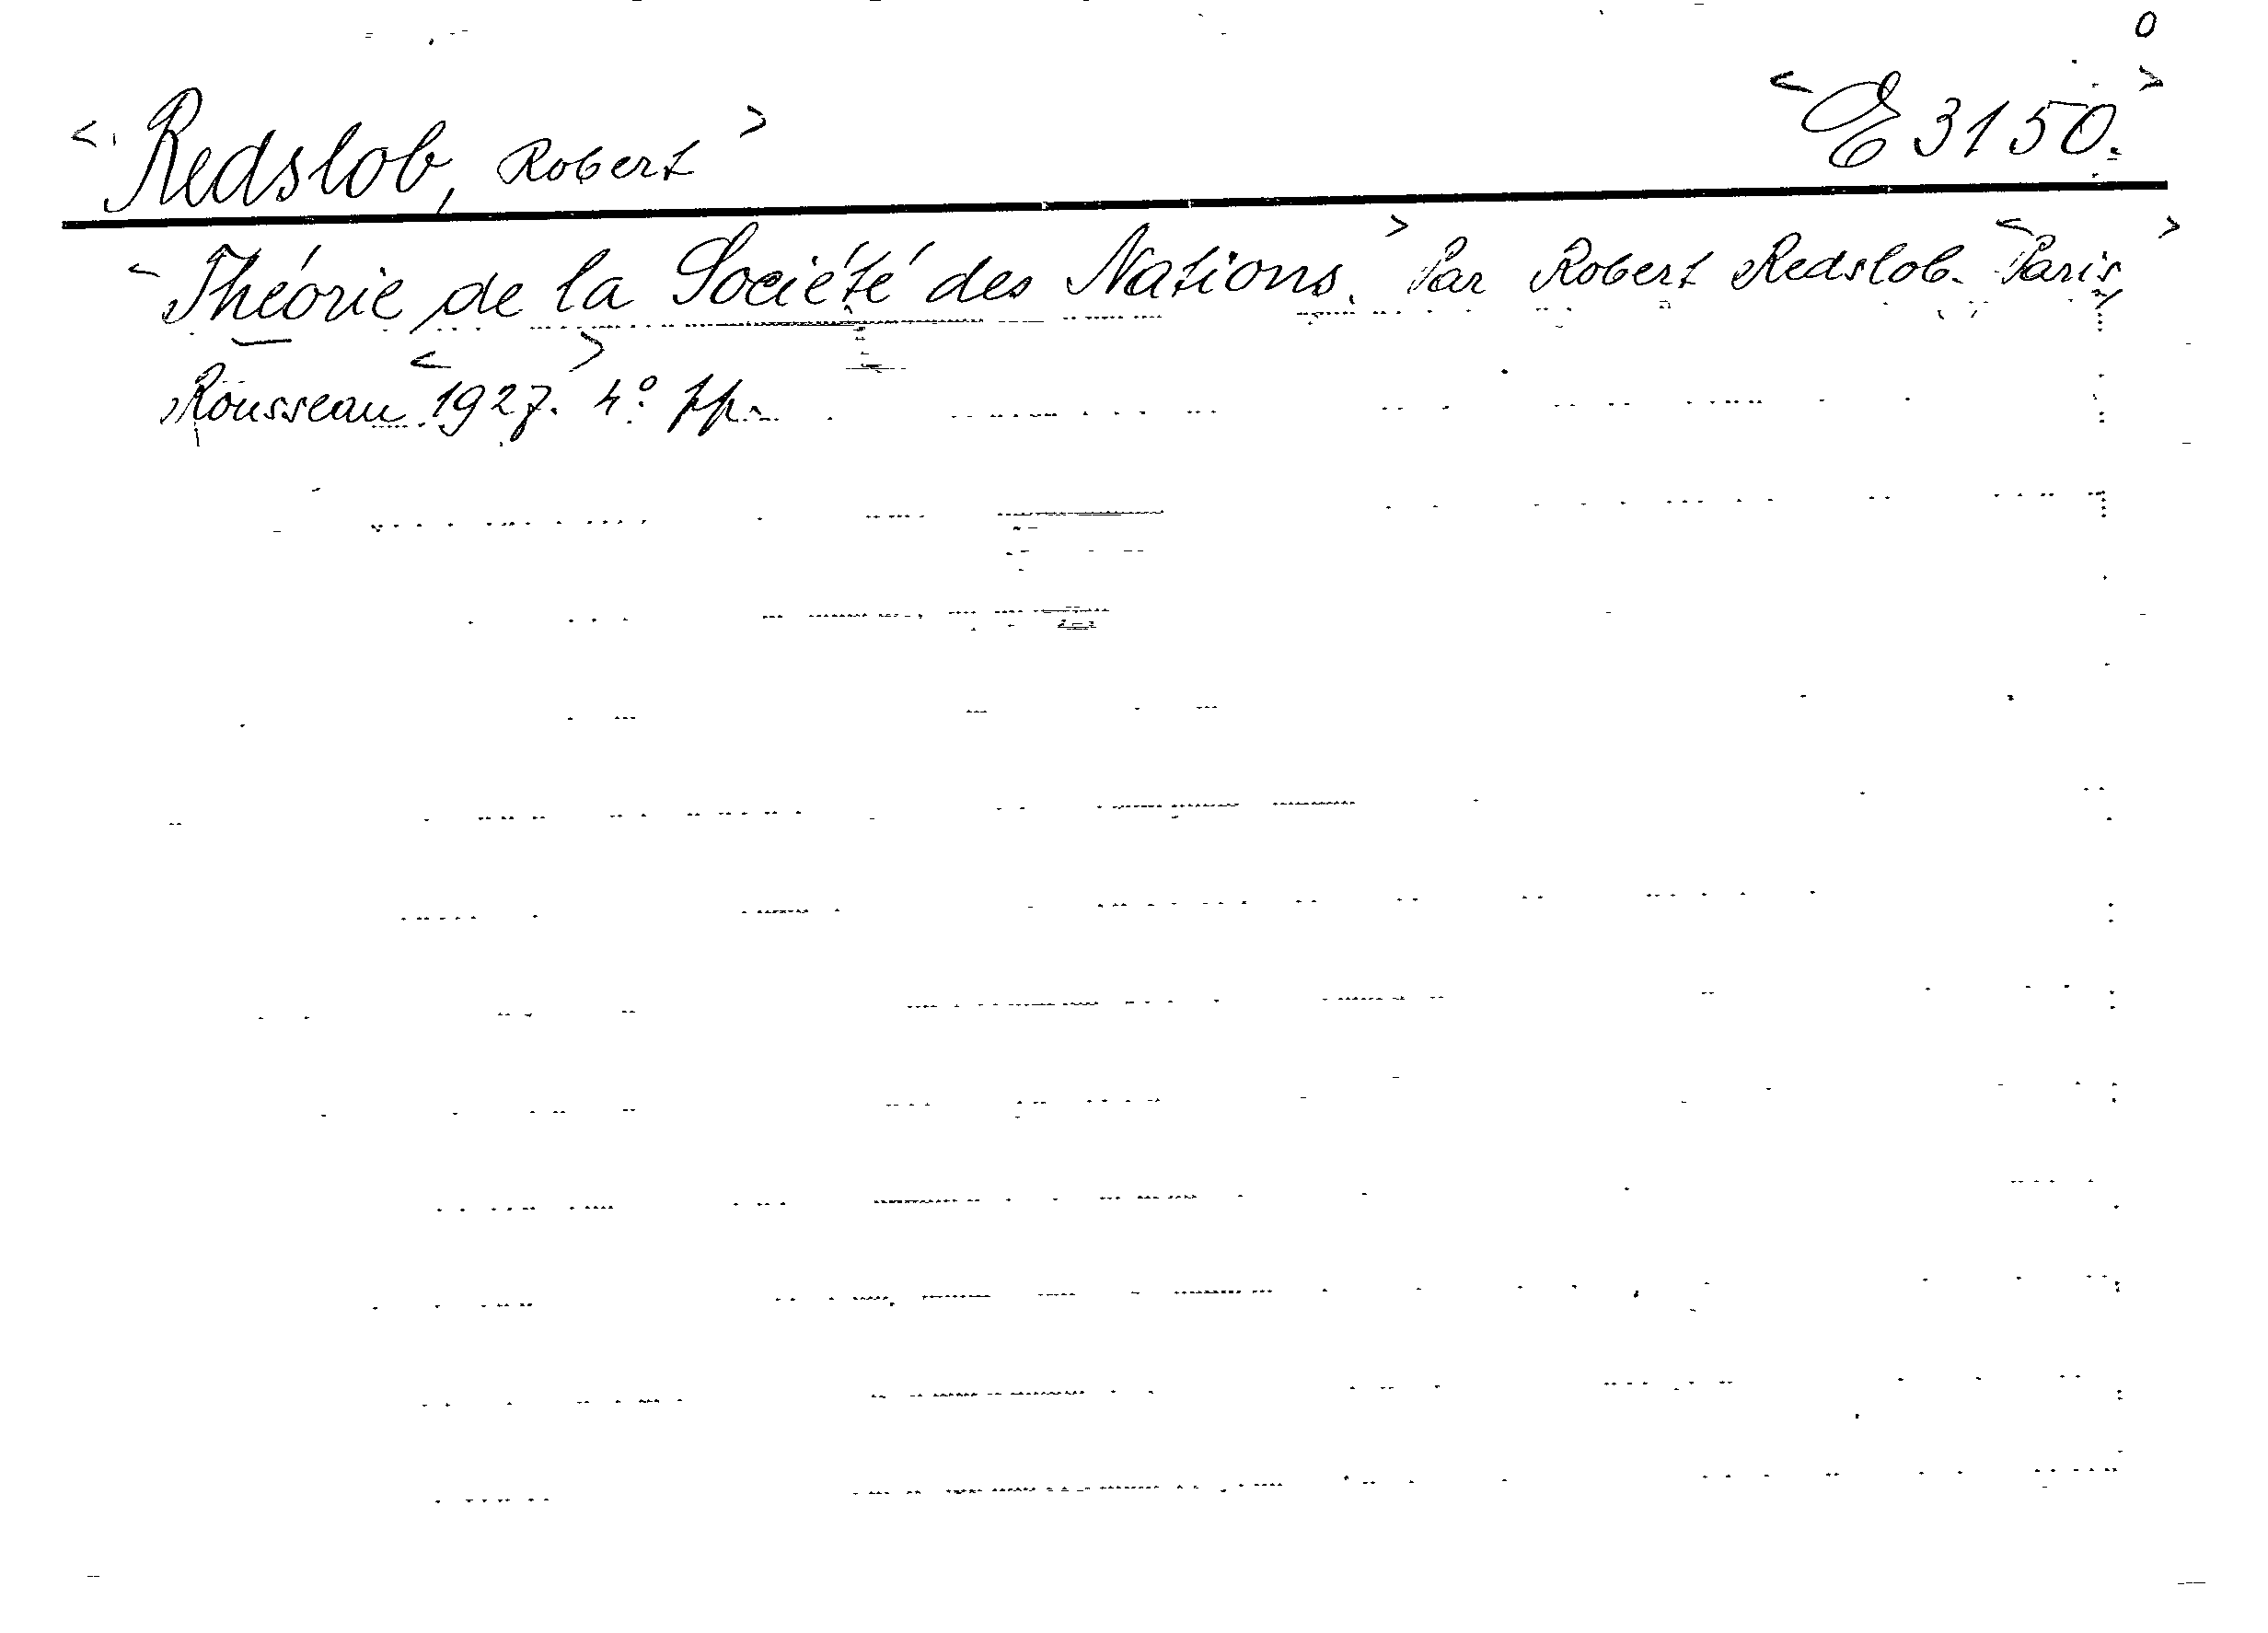 0
< Redslob, Robert > < E 3150. >
< Théorie de la Société des Nations. > Par Robert Redslob. < Paris, >
Rousseau < 1927. > 4° pp.